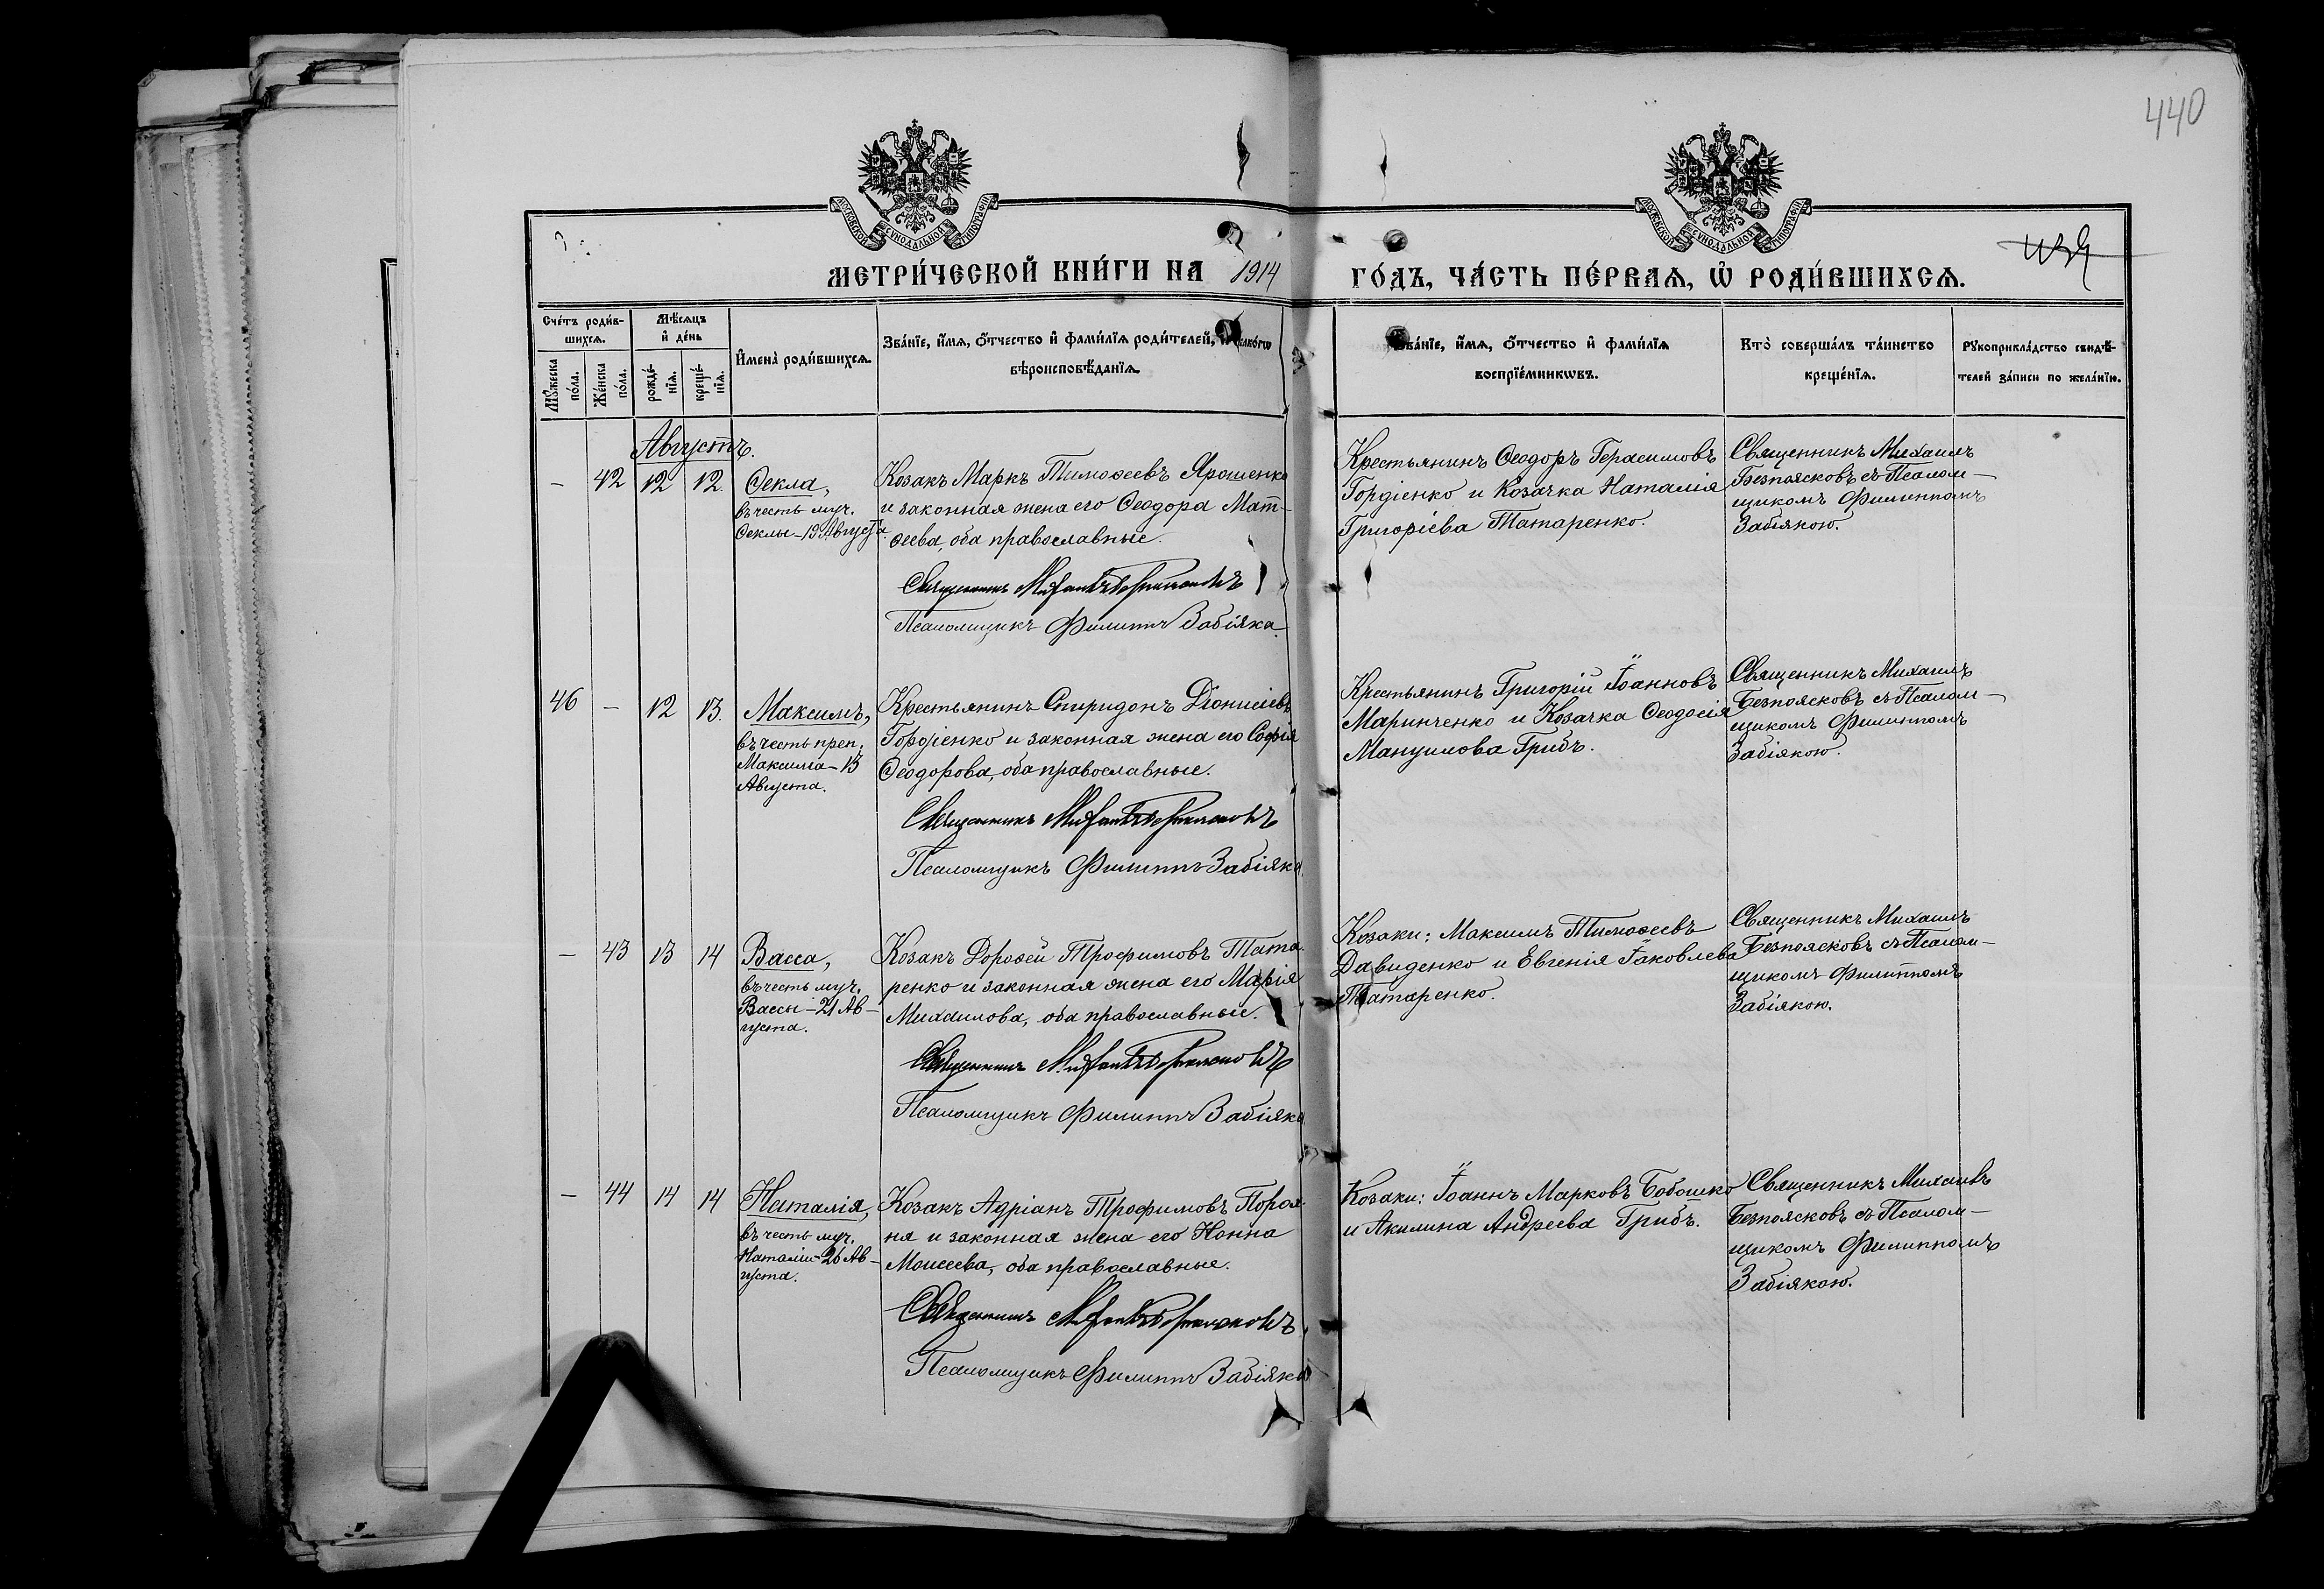 440
МОСКОВСКОЙ СѴНОДАЛЬНОЙ ТИПОГРАФІИ
МОСКОВСКОЙ СѴНОДАЛЬНОЙ ТИПОГРАФІИ
МЕТРИ́ЧЕСКОЙ КНИ́ГИ НА 1914 ГО́ДЪ, ЧА́СТЬ ПЕ́РВАѦ, Ѡ҆ РОДИ́ВШИХСѦ.
Сче́тъ роди́в-
шихсѧ.
Мꙋ́жеска по́ла.
Же́нска по́ла.
Мѣ́сѧцъ
и҆ де́нь
рожде́-
нїѧ.
креще́-
нїѧ.
И҆мена̀ роди́вшихсѧ.
Зва́нїе, и҆́мѧ, ѻ҆́тчество и҆ фами́лїѧ роди́телей, и҆ како́гѡ
вѣроисповѣ́данїѧ.
Зва́нїе, и҆́мѧ, ѻ҆́тчество и҆ фами́лїѧ
воспрїе́мникѡвъ.
Кто̀ соверша́лъ та́инство
креще́нїѧ.
Рꙋкоприкла́дство свидѣ́-
телей за́писи по жела́нїю.
Августъ.
– 42 12 12.
Ѳекла,
въ честь муч.
Ѳеклы – 19 Августа.
Козакъ Маркъ Тимоѳеевъ Ярошенко
и законная жена его Ѳеодора Мат-
ѳеева, оба православные.
Священникъ Михаилъ Безпоясковъ
Псаломщикъ Филиппъ Забіяка.
Крестьянинъ Ѳеодоръ Герасимовъ
Гордіенко и Козачка Наталія
Григоріева Татаренко.
Священникъ Михаилъ
Безпоясковъ съ Псалом-
щикомъ Филиппомъ
Забіякою.
46 – 12 13.
Максимъ,
въ честь преп.
Максима – 13
Августа.
Крестьянинъ Спиридонъ Діонисіевъ
Гордіенко и законная жена его Софія
Ѳеодорова, оба православные.
Священникъ Михаилъ Безпоясковъ
Псаломщикъ Филиппъ Забіяка.
Крестьянинъ Григорій Іоанновъ
Маринченко и Козачка Ѳеодосія
Мануилова Грибъ.
Священникъ Михаилъ
Безпоясковъ съ Псалом-
щикомъ Филиппомъ
Забіякою.
– 43 13 14
Васса,
въ честь муч.
Вассы – 21 Ав-
густа.
Козакъ Дороѳей Трофимовъ Тата-
ренко и законная жена его Марія
Михаилова, оба православные.
Священникъ Михаилъ Безпоясковъ
Псаломщикъ Филиппъ Забіяка
Козаки: Максимъ Тимоѳеевъ
Давиденко и Евгенія Іаковлева
Татаренко.
Священникъ Михаилъ
Безпоясковъ съ Псалом-
щикомъ Филиппомъ
Забіякою.
– 44 14 14
Наталія,
въ честь муч.
Наталіи – 26 Ав-
густа.
Козакъ Адріанъ Трофимовъ Пороя-
ня и законная жена его Нонна
Моисеева, оба православные.
Священникъ Михаилъ Безпоясковъ
Псаломщикъ Филиппъ Забіяка
Козаки: Іоаннъ Марковъ Бобошко
и Акилина Андреева Грибъ.
Священникъ Михаилъ
Безпоясковъ съ Псалом-
щикомъ Филиппомъ
Забіякою.